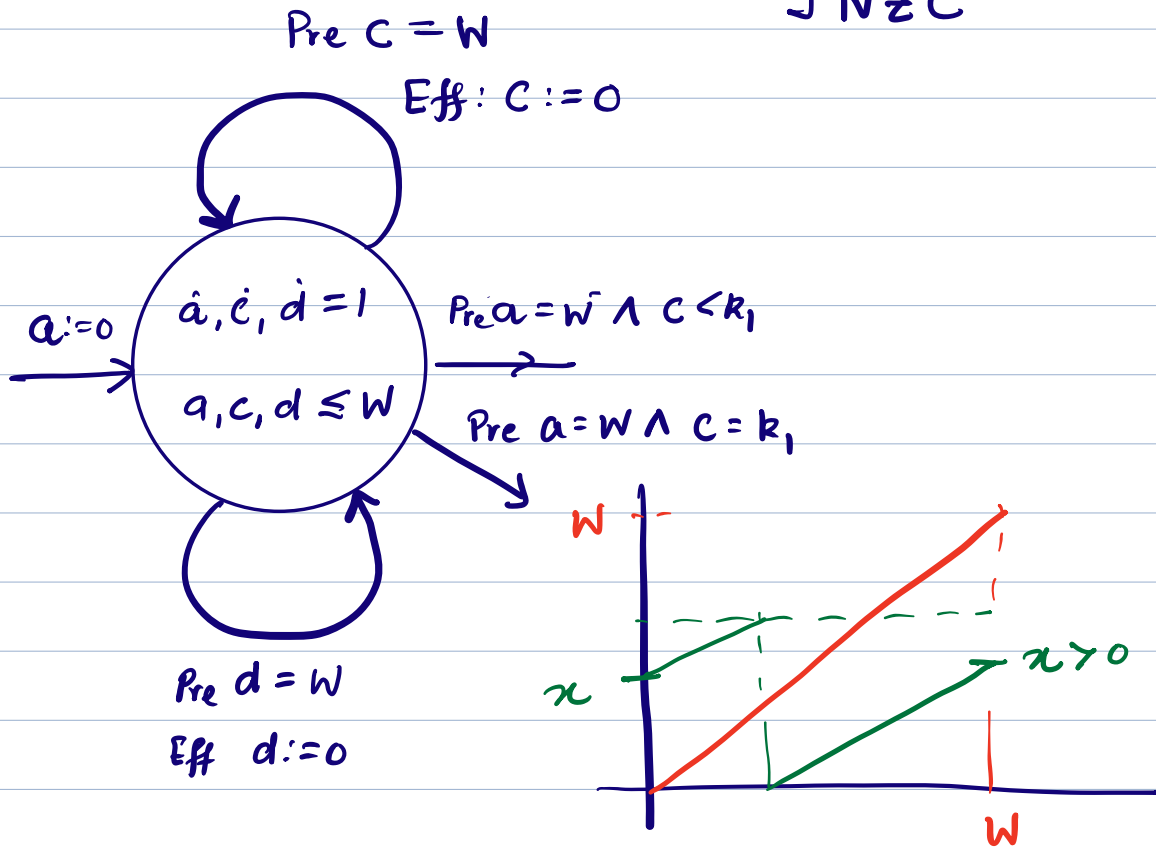 JNZC
Pre C = W
Eff: C := 0
a := 0
ȧ, ċ, ḋ = 1
a, c, d ≤ W
Pre a = W ∧ C < k₁
Pre a = W ∧ C = k₁
Pre d = W
Eff d := 0
W
x
x > 0
W